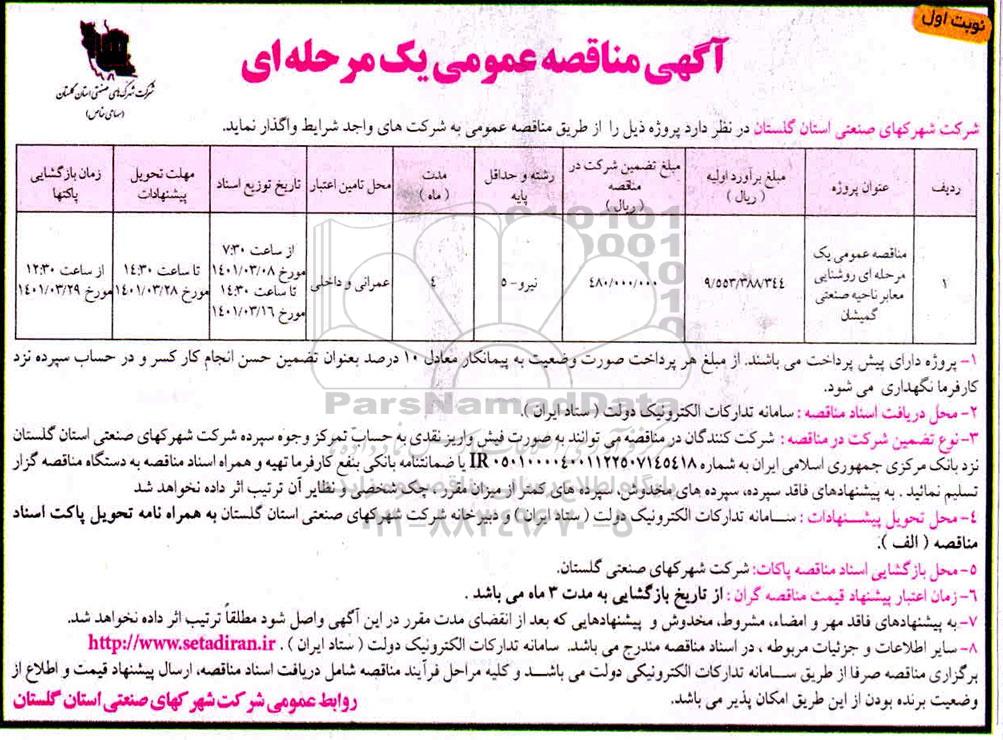 نوبت اول
آگهی مناقصه عمومی یک مرحله ای
شرکت شهرک‌های صنعتی استان گلستان
(سهامی خاص)
شرکت شهرکهای صنعتی استان گلستان در نظر دارد پروژه ذیل را از طریق مناقصه عمومی به شرکت های واجد شرایط واگذار نماید.
ردیف
عنوان پروژه
مبلغ برآورد اولیه
( ریال )
مبلغ تضمین شرکت در
مناقصه
( ریال )
رشته و حداقل
پایه
مدت
( ماه )
محل تامین اعتبار
تاریخ توزیع اسناد
مهلت تحویل
پیشنهادات
زمان بازگشایی
پاکتها
۱
مناقصه عمومی یک
مرحله ای روشنایی
معابر ناحیه صنعتی
گمیشان
۹/۵۵۳/۳۸۸/۳۴۴
۴۸۰/۰۰۰/۰۰۰
نیرو- ۵
۴
عمرانی و داخلی
از ساعت ۷:۳۰
مورخ ۱۴۰۱/۰۳/۰۸
تا ساعت ۱۴:۳۰
مورخ ۱۴۰۱/۰۳/۱۶
تا ساعت ۱۴:۳۰
مورخ ۱۴۰۱/۰۳/۲۸
از ساعت ۱۲:۳۰
مورخ ۱۴۰۱/۰۳/۲۹
۱- پروژه دارای پیش پرداخت می باشند. از مبلغ هر پرداخت صورت وضعیت به پیمانکار معادل ۱۰ درصد بعنوان تضمین حسن انجام کار کسر و در حساب سپرده نزد
کارفرما نگهداری می شود.
۲- محل دریافت اسناد مناقصه : سامانه تدارکات الکترونیک دولت ( ستاد ایران ).
۳- نوع تضمین شرکت در مناقصه : شرکت کنندگان در مناقصه می توانند به صورت فیش واریز نقدی به حساب تمرکز وجوه سپرده شرکت شهرکهای صنعتی استان گلستان
نزد بانک مرکزی جمهوری اسلامی ایران به شماره IR ۰۵۰۱۰۰۰۰۴۰۰۱۱۲۲۵۰۷۱۴۵۴۱۸ یا ضمانتنامه بانکی بنفع کارفرما تهیه و همراه اسناد مناقصه به دستگاه مناقصه گزار
تسلیم نمائید . به پیشنهادهای فاقد سپرده، سپرده های مخدوش، سپرده های کمتر از میزان مقرر ، چک شخصی و نظایر آن ترتیب اثر داده نخواهد شد
۴- محل تحویل پیشنهادات : سامانه تدارکات الکترونیک دولت ( ستاد ایران ) و دبیرخانه شرکت شهرکهای صنعتی استان گلستان به همراه نامه تحویل پاکت اسناد
مناقصه ( الف ).
۵- محل بازگشایی اسناد مناقصه پاکات: شرکت شهرکهای صنعتی گلستان.
۶- زمان اعتبار پیشنهاد قیمت مناقصه گران : از تاریخ بازگشایی به مدت ۳ ماه می باشد .
۷- به پیشنهادهای فاقد مهر و امضاء، مشروط، مخدوش و پیشنهادهایی که بعد از انقضای مدت مقرر در این آگهی واصل شود مطلقاً ترتیب اثر داده نخواهد شد.
۸- سایر اطلاعات و جزئیات مربوطه ، در اسناد مناقصه مندرج می باشد. سامانه تدارکات الکترونیک دولت ( ستاد ایران ) . http://www.setadiran.ir
برگزاری مناقصه صرفا از طریق سامانه تدارکات الکترونیکی دولت می باشد و کلیه مراحل فرآیند مناقصه شامل دریافت اسناد مناقصه، ارسال پیشنهاد قیمت و اطلاع از
وضعیت برنده بودن از این طریق امکان پذیر می باشد.
روابط عمومی شرکت شهرکهای صنعتی استان گلستان
ParsNamadData
پایگاه اطلاع رسانی مناقصه و مزایده
۰۲۱-۸۸۳۴۹۶۷۰-۵